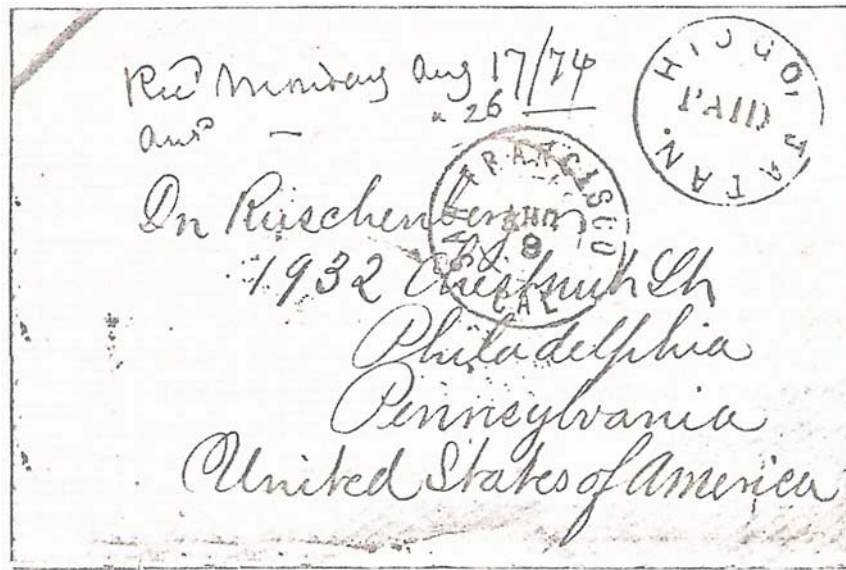 Rec'd Monday Aug 17/74
Ans'd — " 26
HIOGO, JAPAN.
PAID
SAN FRANCISCO
AUG
8
CAL
Dr Ruschenberger
1932 Chestnut St
Philadelphia
Pennsylvania
United States of America